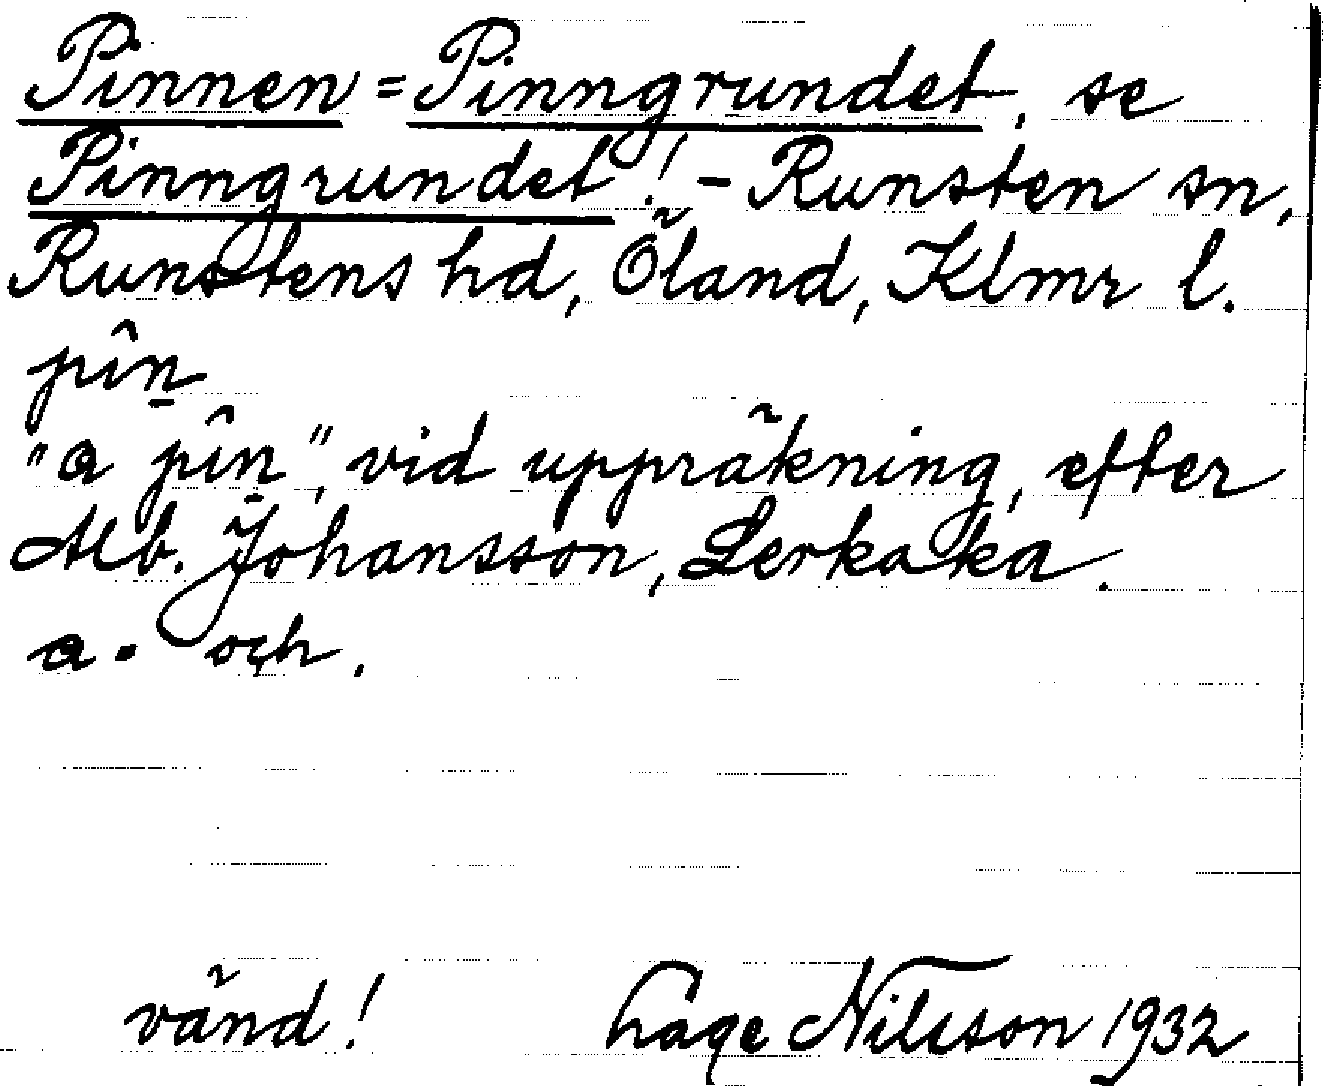 Pinnen = Pinngrundet, se
Pinngrundet! - Runsten sn,
Runstens hd, Öland, Klmr l.
pîn̲
"a pîn̲", vid uppräkning, efter
Alb. Johansson, Lerkaka.
a = och.
vänd! Låge Nilsson 1932